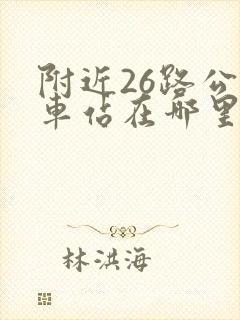 附近26路公
車佔在哪里
林洪海